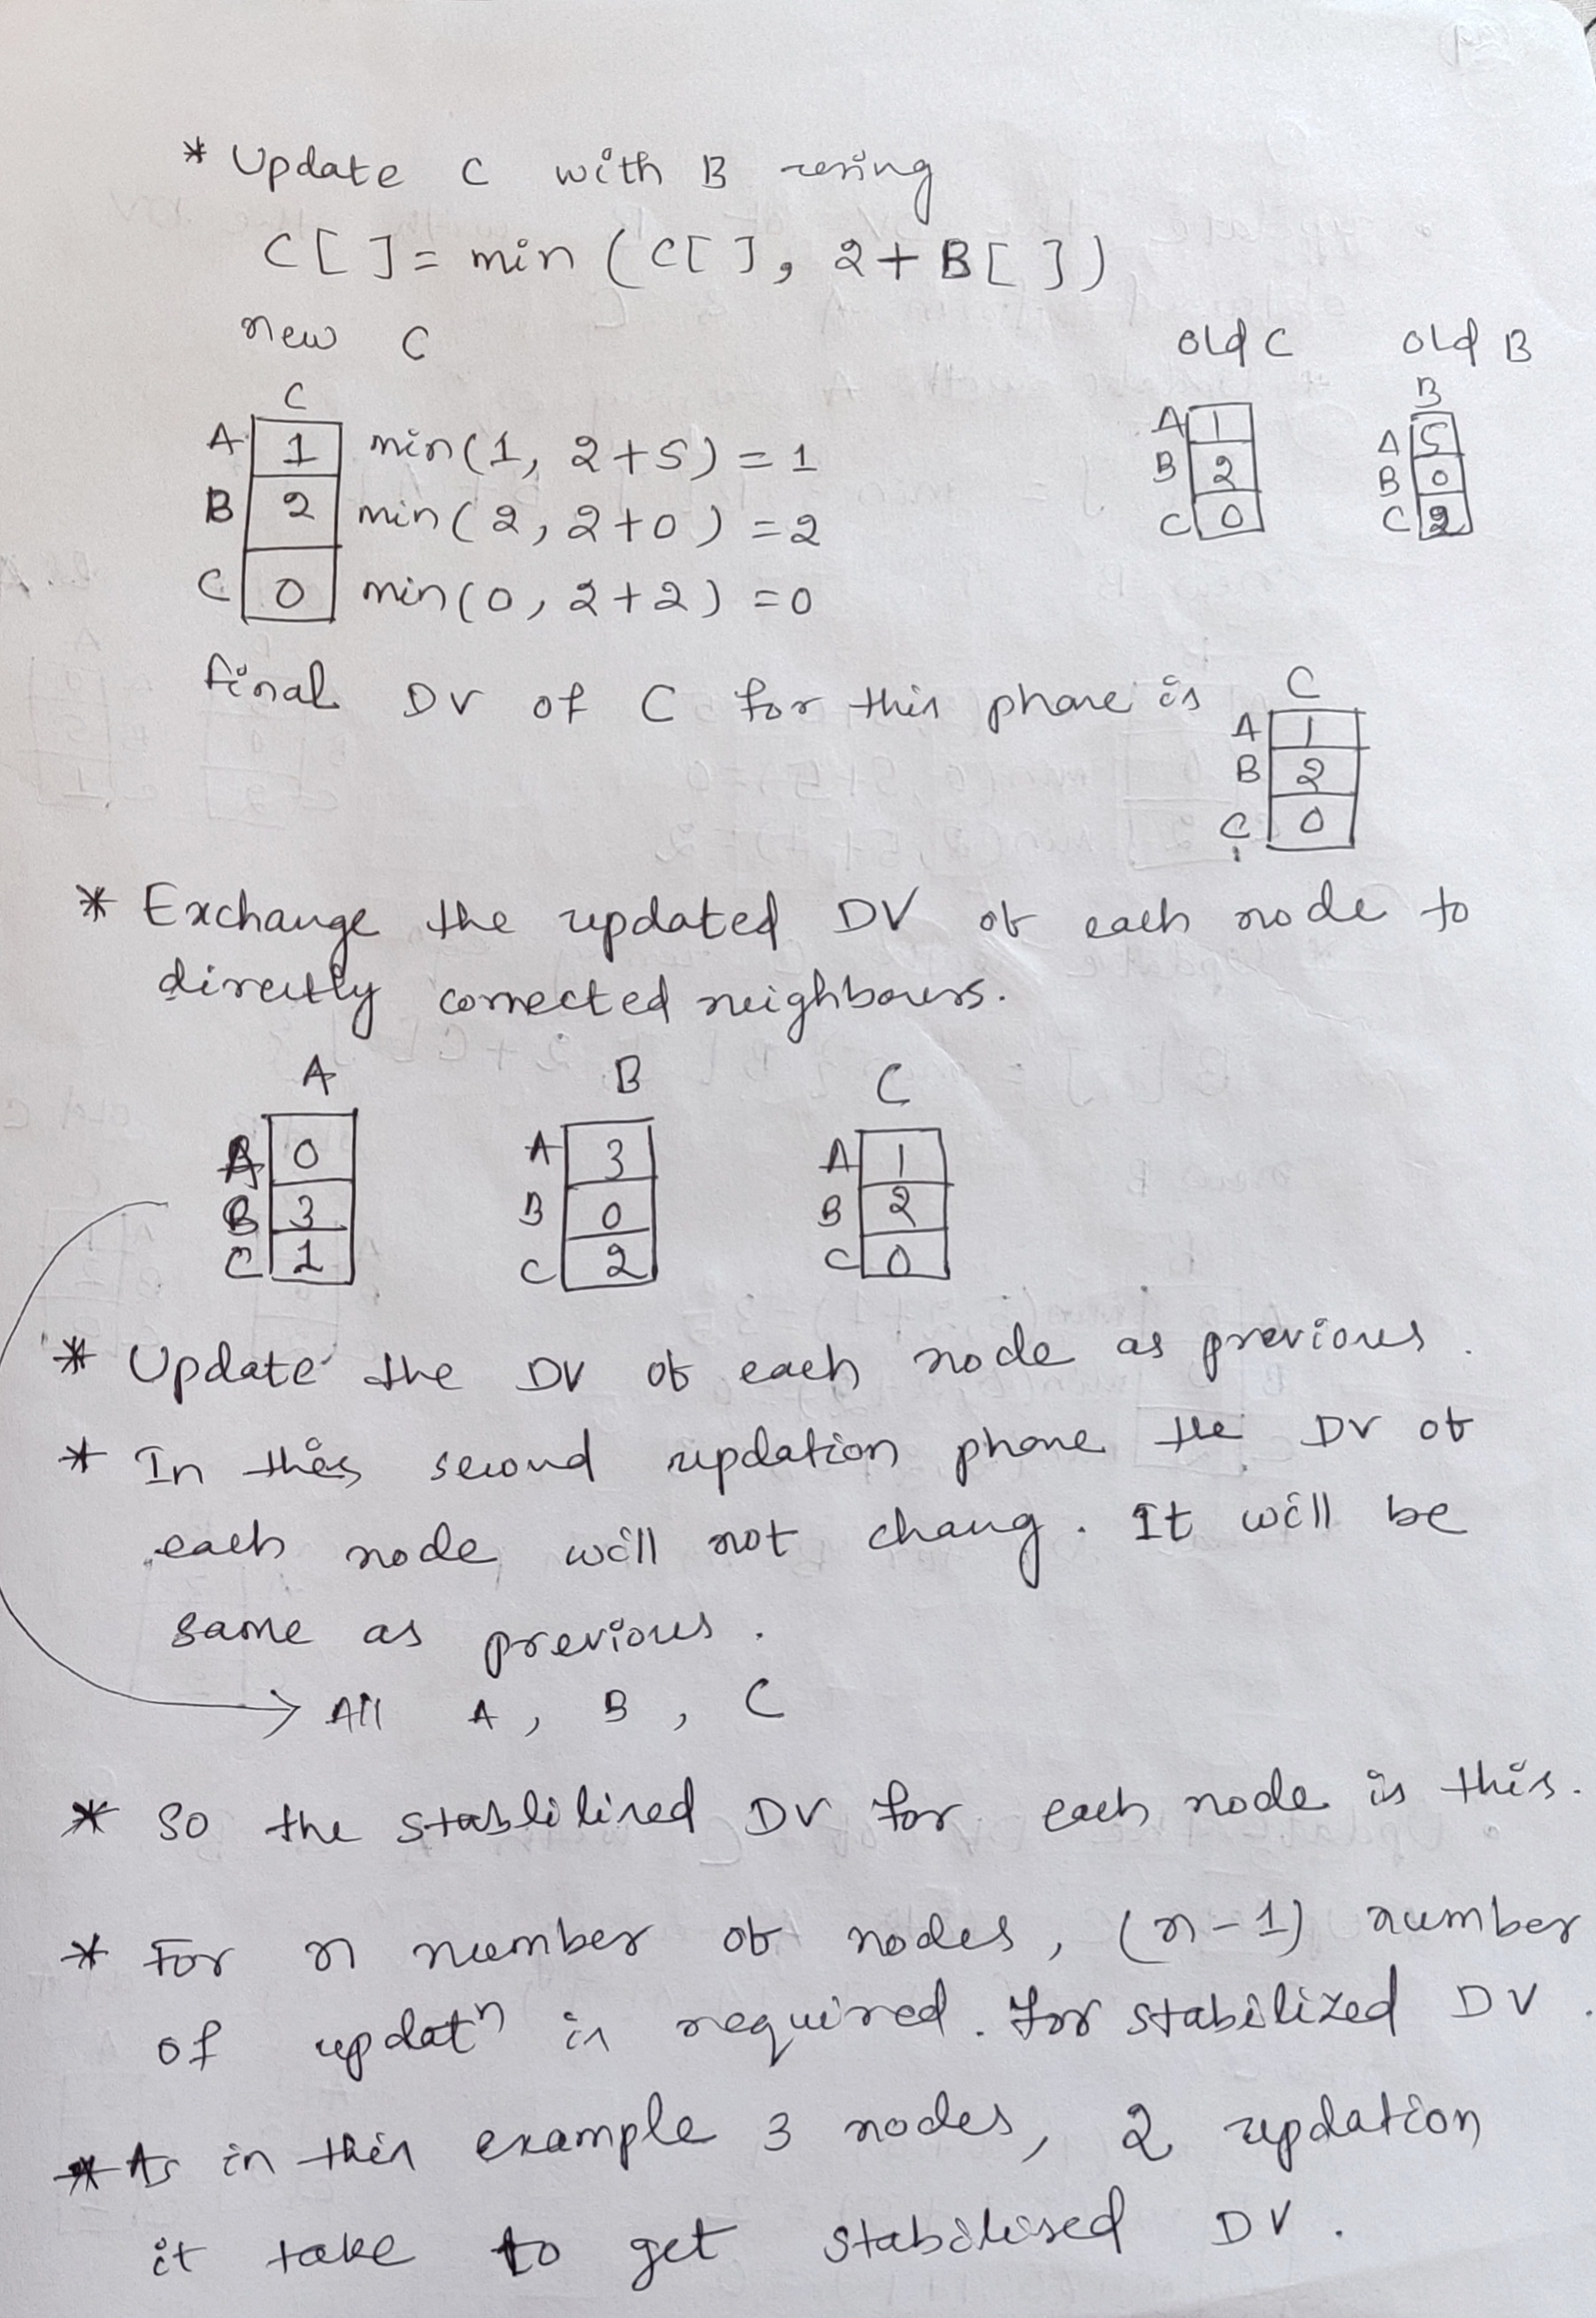 * Update C with B using
C[ ] = min ( C[ ], 2 + B[ ] )
new C
old C old B
C
A 1 min(1, 2+5) = 1
B 2 min(2, 2+0) = 2
C 0 min(0, 2+2) = 0
A 1
B 2
C 0
B
A 5
B 0
C 2
final DV of C for this phase is
C
A 1
B 2
C 0
* Exchange the updated DV of each node to
directly connected neighbours.
A B C
A 0 A 3 A 1
B 3 B 0 B 2
C 1 C 2 C 0
* Update the DV of each node as previous.
* In this second updation phase the DV of
each node will not chang. It will be
same as previous.
→ All A, B, C
* So the stablilised DV for each node is this.
* For n number of nodes, (n-1) number
of updatⁿ is required. for stabilized DV.
* As in this example 3 nodes, 2 updation
it take to get stabilised DV.